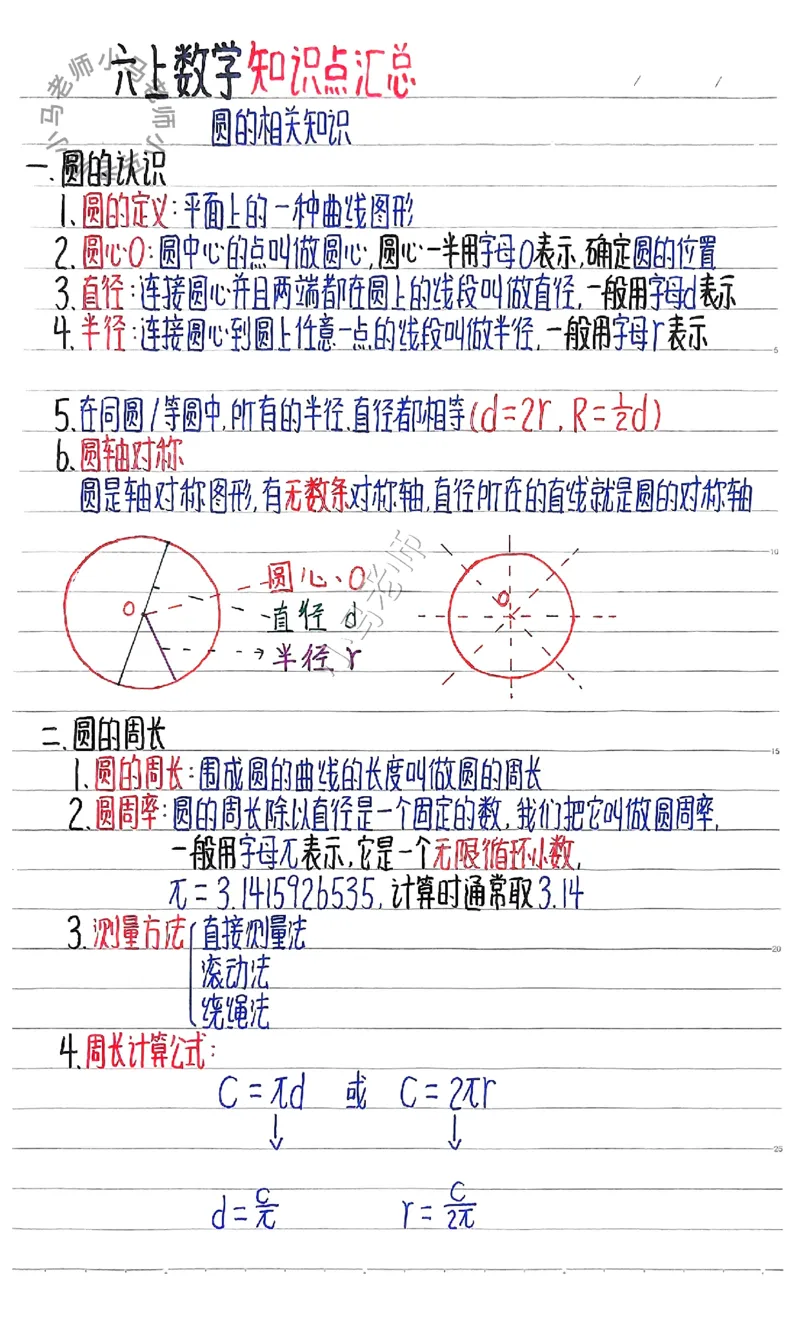 六上数学知识点汇总
圆的相关知识
一.圆的认识
1.圆的定义:平面上的一种曲线图形
2.圆心O:圆中心的点叫做圆心,圆心一半用字母O表示,确定圆的位置
3.直径:连接圆心并且两端都在圆上的线段叫做直径,一般用字母d表示
4.半径:连接圆心到圆上任意一点的线段叫做半径,一般用字母r表示
5.在同圆/等圆中,所有的半径、直径都相等(d=2r,R=½d)
6.圆轴对称
圆是轴对称图形,有无数条对称轴,直径所在的直线就是圆的对称轴
O
圆心·O
直径 d
半径 r
O
二.圆的周长
1.圆的周长:围成圆的曲线的长度叫做圆的周长
2.圆周率:圆的周长除以直径是一个固定的数,我们把它叫做圆周率,
一般用字母π表示,它是一个无限循环小数,
π=3.1415926535,计算时通常取3.14
3.测量方法{直接测量法
滚动法
绕绳法
4.周长计算公式:
C=πd 或 C=2πr
↓ ↓
d=C/π r=C/2π
小马老师小马老师小马老师
小马老师
5
10
15
20
25